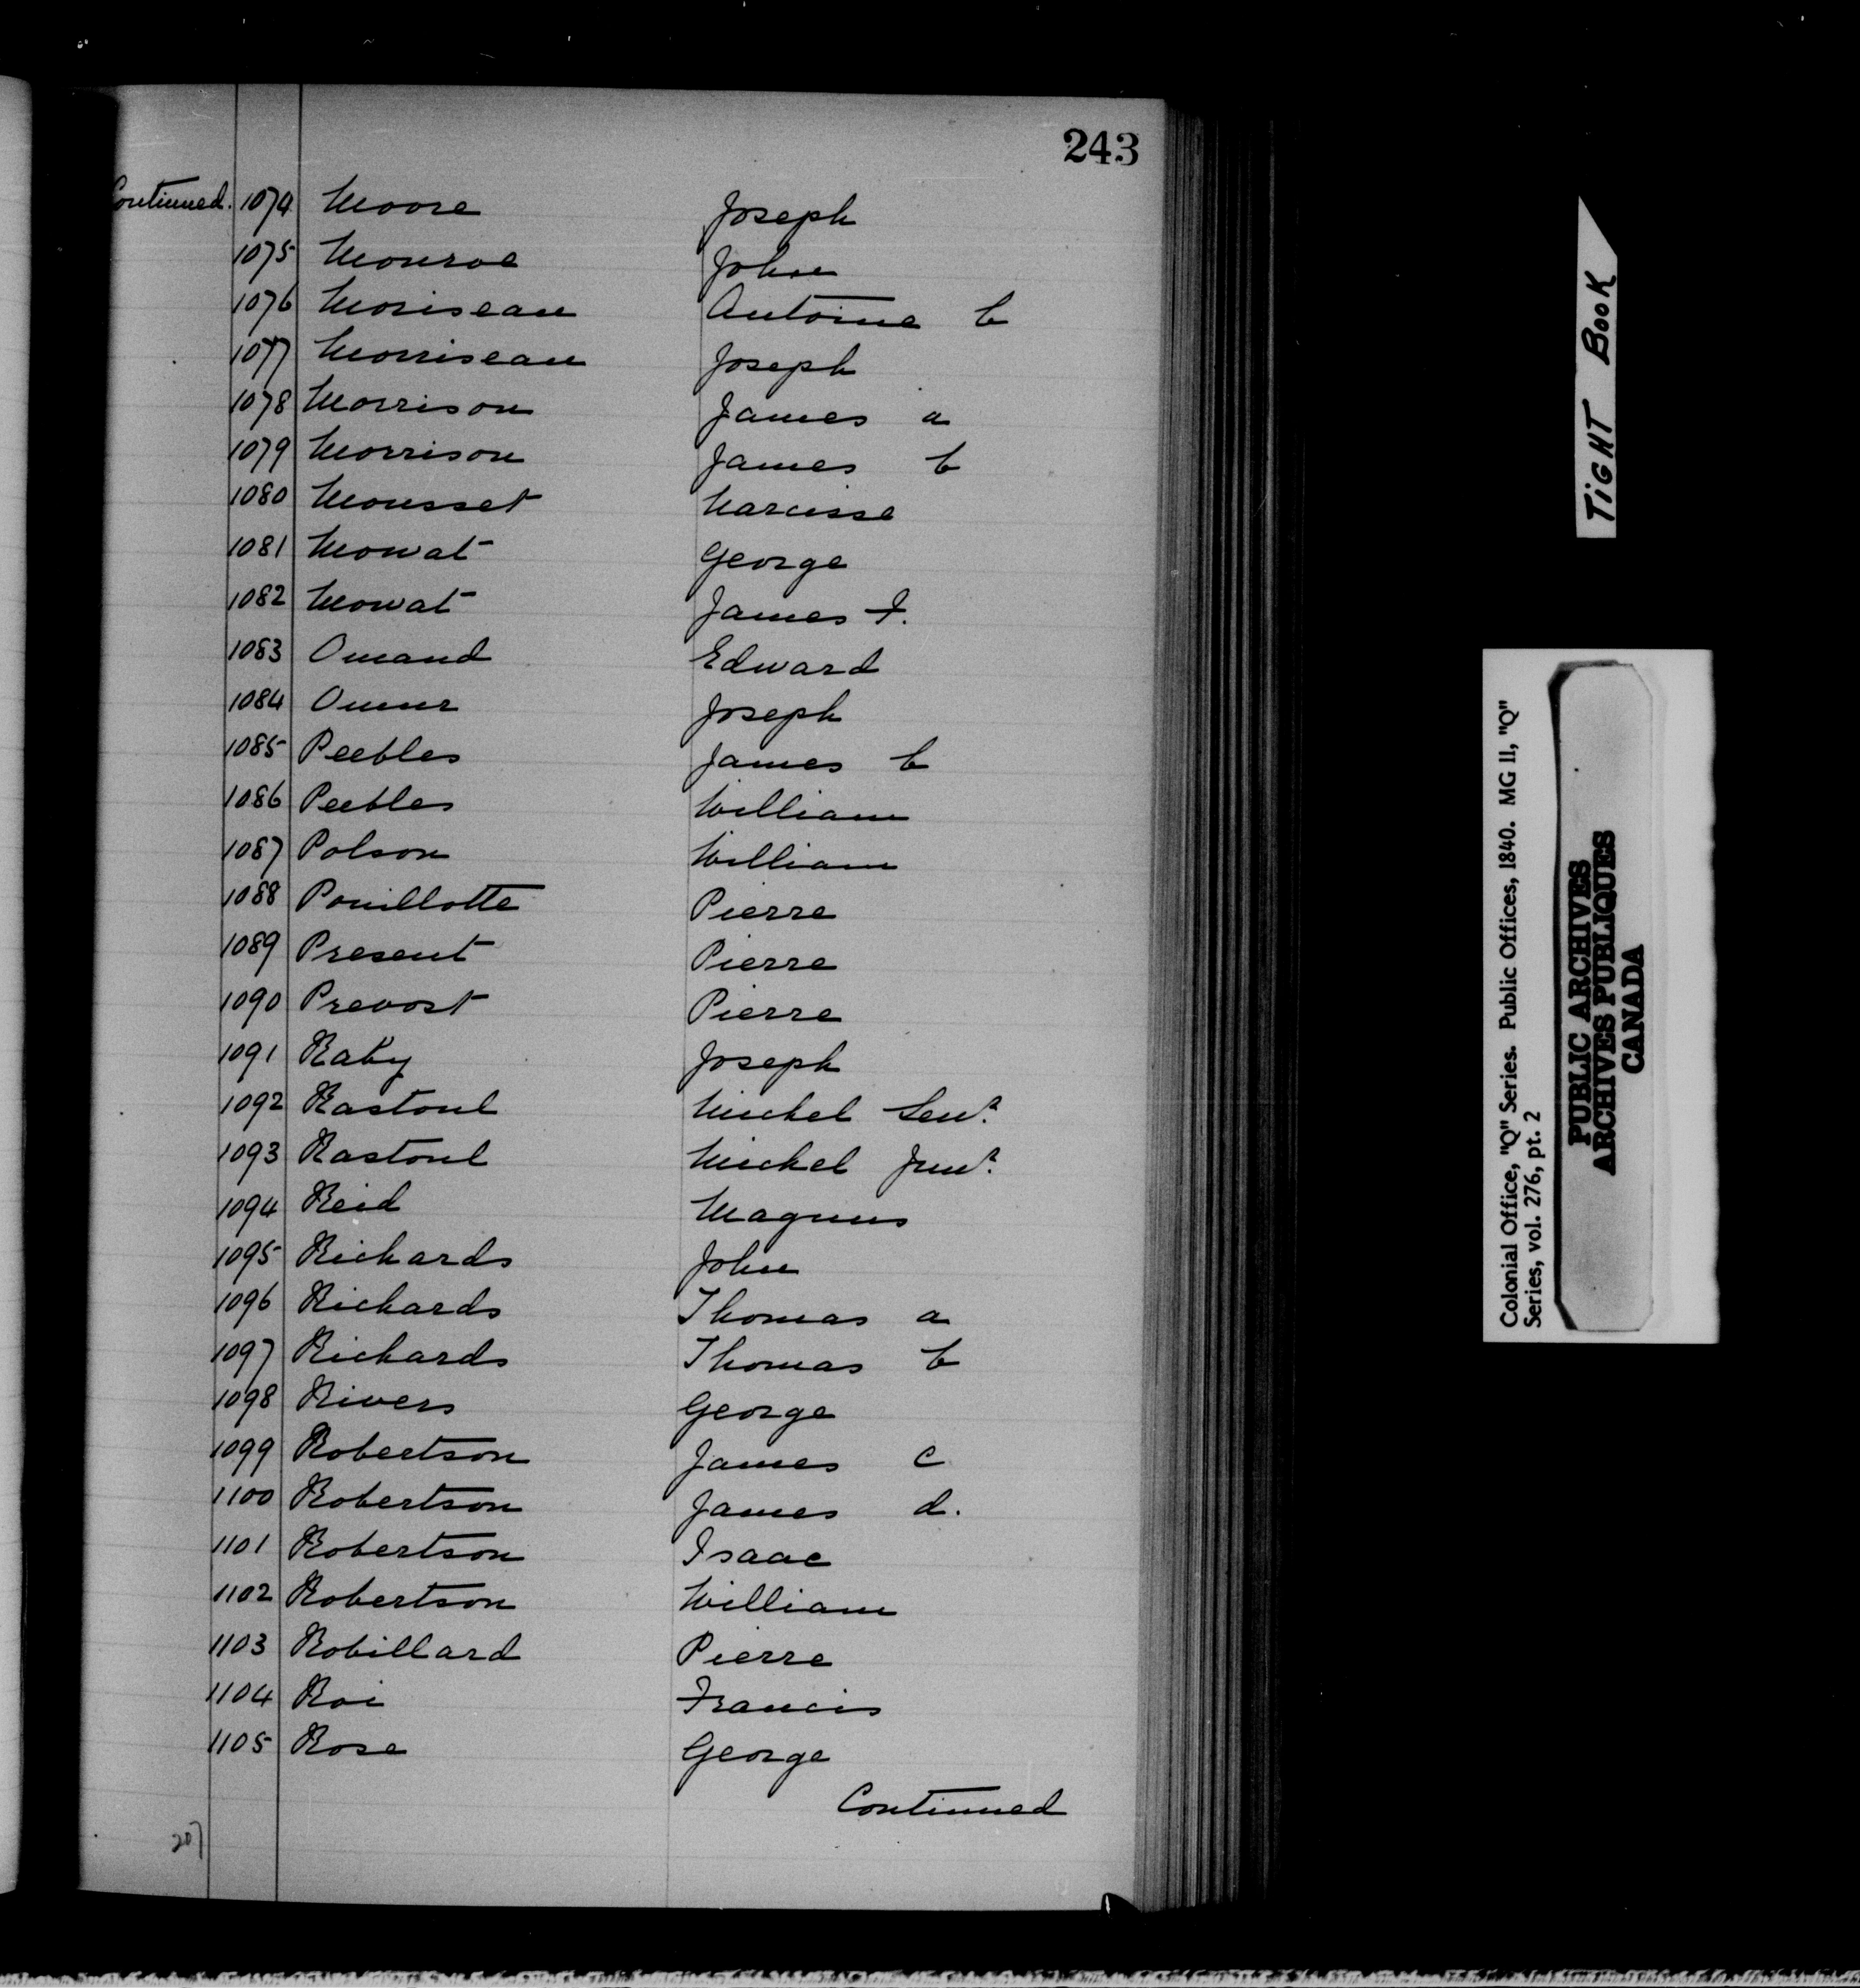 243
Continued. 1074 Moore Joseph
1075 Monroe John
1076 Moriseau Antoine b
1077 Morriseau Joseph
1078 Morrison James a
1079 Morrison James b
1080 Mousset Narcisse
1081 Mowat George
1082 Mowat James F.
1083 Omand Edward
1084 Joseph
1085 Peebles James b
1086 Peebles William
1087 Polson William
1088 Pouillotte Pierre
1089 Present Pierre
1090 Prevost Pierre
1091 Raby Joseph
1092 Rastoul Michel Senr.
1093 Rastoul Michel Junr.
1094 Reid Magnus
1095 Richards John
1096 Richards Thomas a
1097 Richards Thomas b
1098 Rivers George
1099 Robertson James c
1100 Robertson James d.
1101 Robertson Isaac
1102 Robertson William
1103 Robillard Pierre
1104 Roi Francis
1105 Rose George
Continued
207
TIGHT BOOK
Colonial Office, "Q" Series. Public Offices, 1840. MG 11, "Q"
Series, vol. 276, pt. 2
PUBLIC ARCHIVES
ARCHIVES PUBLIQUES
CANADA